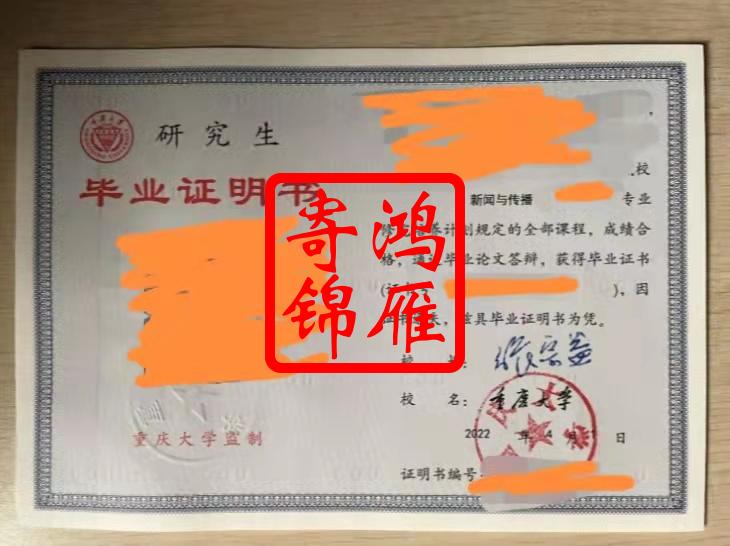 研究生
毕业证明书
校
新闻与传播 专业
计划规定的全部课程，成绩合
格，通过毕业论文答辩，获得毕业证书
)，因
兹具毕业证明书为凭。
校 长：
校 名：重庆大学
2022 年 4 月 日
证明书编号：
重庆大学监制
寄鸿
锦雁